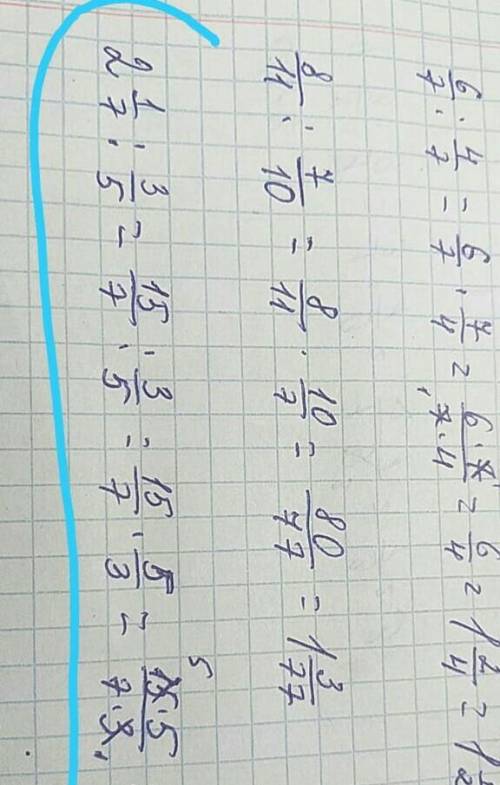 6/7 : 4/7 = 6/7 · 7/4 = 6·7/7·4 = 6/4 = 1 2/4 = 1 1/2
8/11 : 7/10 = 8/11 · 10/7 = 80/77 = 1 3/77
2 1/7 : 3/5 = 15/7 : 3/5 = 15/7 · 5/3 = 15·5/7·3